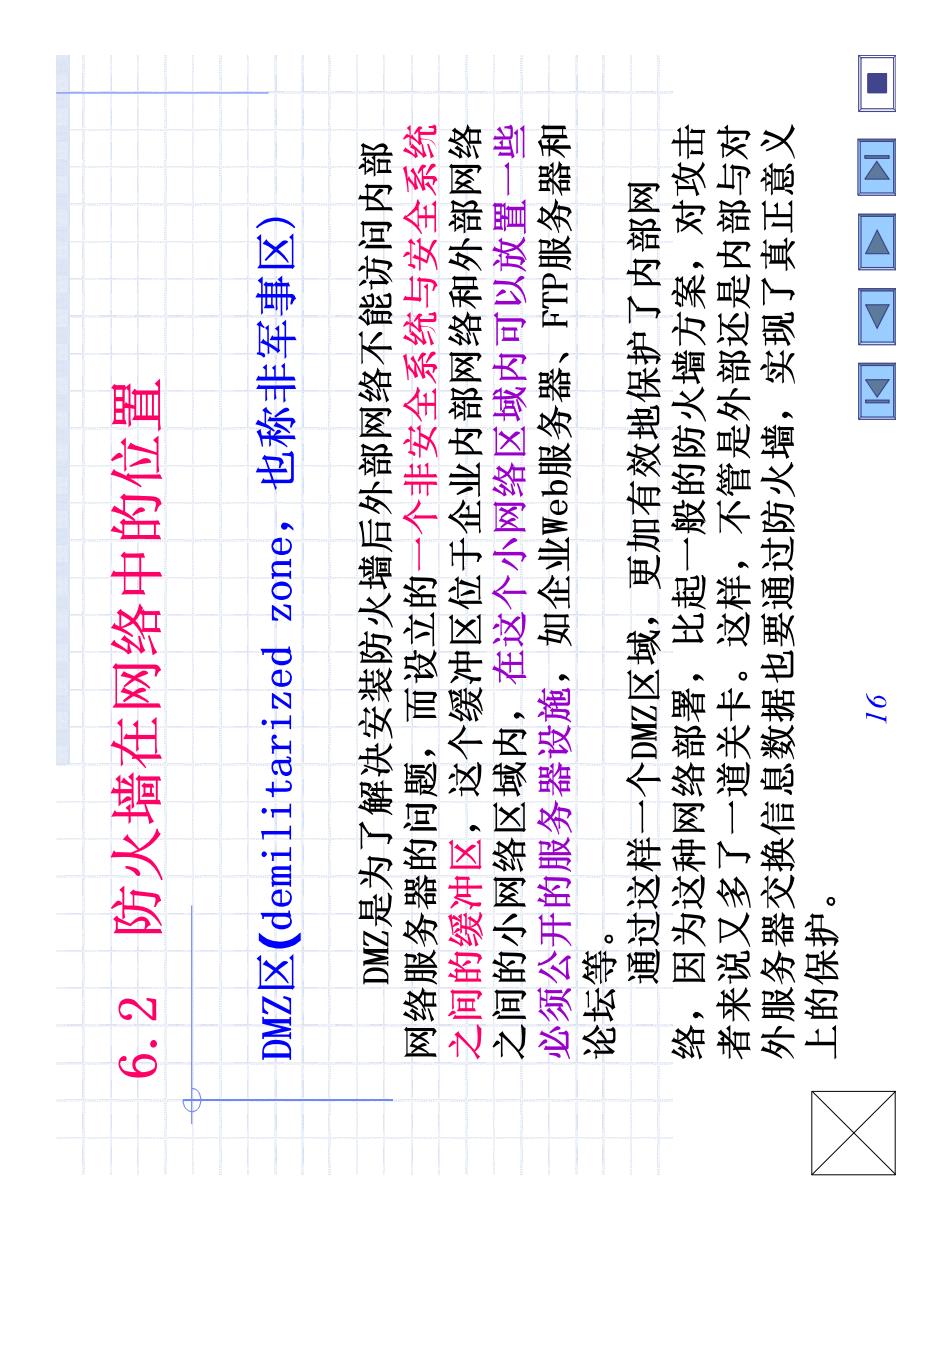 6.2 防火墙在网络中的位置
DMZ区(demilitarized zone，也称非军事区)
DMZ是为了解决安装防火墙后外部网络不能访问内部
网络服务器的问题，而设立的一个非安全系统与安全系统
之间的缓冲区，这个缓冲区位于企业内部网络和外部网络
之间的小网络区域内，在这个小网络区域内可以放置一些
必须公开的服务器设施，如企业Web服务器、FTP服务器和
论坛等。
通过这样一个DMZ区域，更加有效地保护了内部网
络，因为这种网络部署，比起一般的防火墙方案，对攻击
者来说又多了一道关卡。这样，不管是外部还是内部与对
外服务器交换信息数据也要通过防火墙，实现了真正意义
上的保护。
16